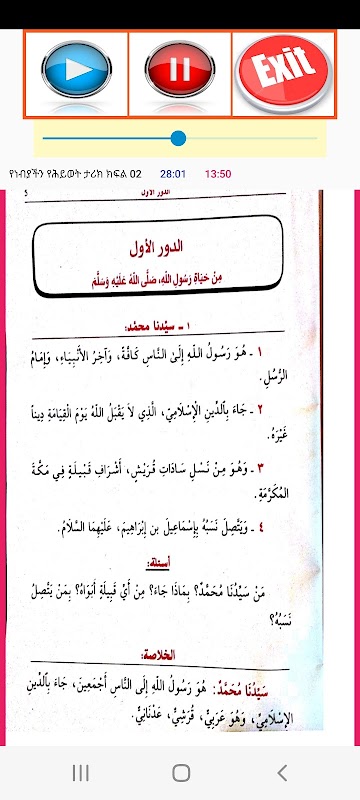 Exit
የነብያችን የሕይወት ታሪክ ክፍል 02 28:01 13:50
الدور الأول ٥
الدور الأول
مِنْ حَيَاةِ رَسُولِ اللَّهِ، صَلَّى اللَّهُ عَلَيْهِ وَسَلَّمَ
١ - سيّدنا محمّد:
١ - هُوَ رَسُولُ اللَّهِ إِلَىٰ النَّاسِ كَافَّةً، وَآخِرُ الأَنْبِيَاءِ، وَإِمَامُ
الرُّسُلِ.
٢ - جَاءَ بِالدِّينِ الْإِسْلَامِيِّ، الَّذِي لاَ يَقْبَلُ اللَّهُ يَوْمَ الْقِيَامَةِ دِيناً
غَيْرَهُ.
٣ - وَهُوَ مِنْ نَسْلِ سَادَاتِ قُرَيْشٍ، أَشْرَافِ قَبِيلَةٍ فِي مَكَّةَ
المُكَرَّمَةِ.
٤ - وَيَتَّصِلُ نَسَبُهُ بِإِسْمَاعِيلَ بن إِبْرَاهِيمَ، عَلَيْهِمَا السَّلَامُ.
أسئلة:
مَنْ سَيِّدُنَا مُحَمَّدٌ؟ بِمَاذَا جَاءَ؟ مِنْ أَيِّ قَبِيلَةٍ أَبَوَاهُ؟ بِمَنْ يَتَّصِلُ
نَسَبُهُ؟
الخلاصة:
سَيِّدُنَا مُحَمَّدٌ: هُوَ رَسُولُ اللَّهِ إِلَى النَّاسِ أَجْمَعِينَ، جَاءَ بِالدِّينِ
الإِسْلَامِيِّ، وَهُوَ عَرَبِيٌّ، قُرَشِيٌّ، عَدْنَانِيٌّ.